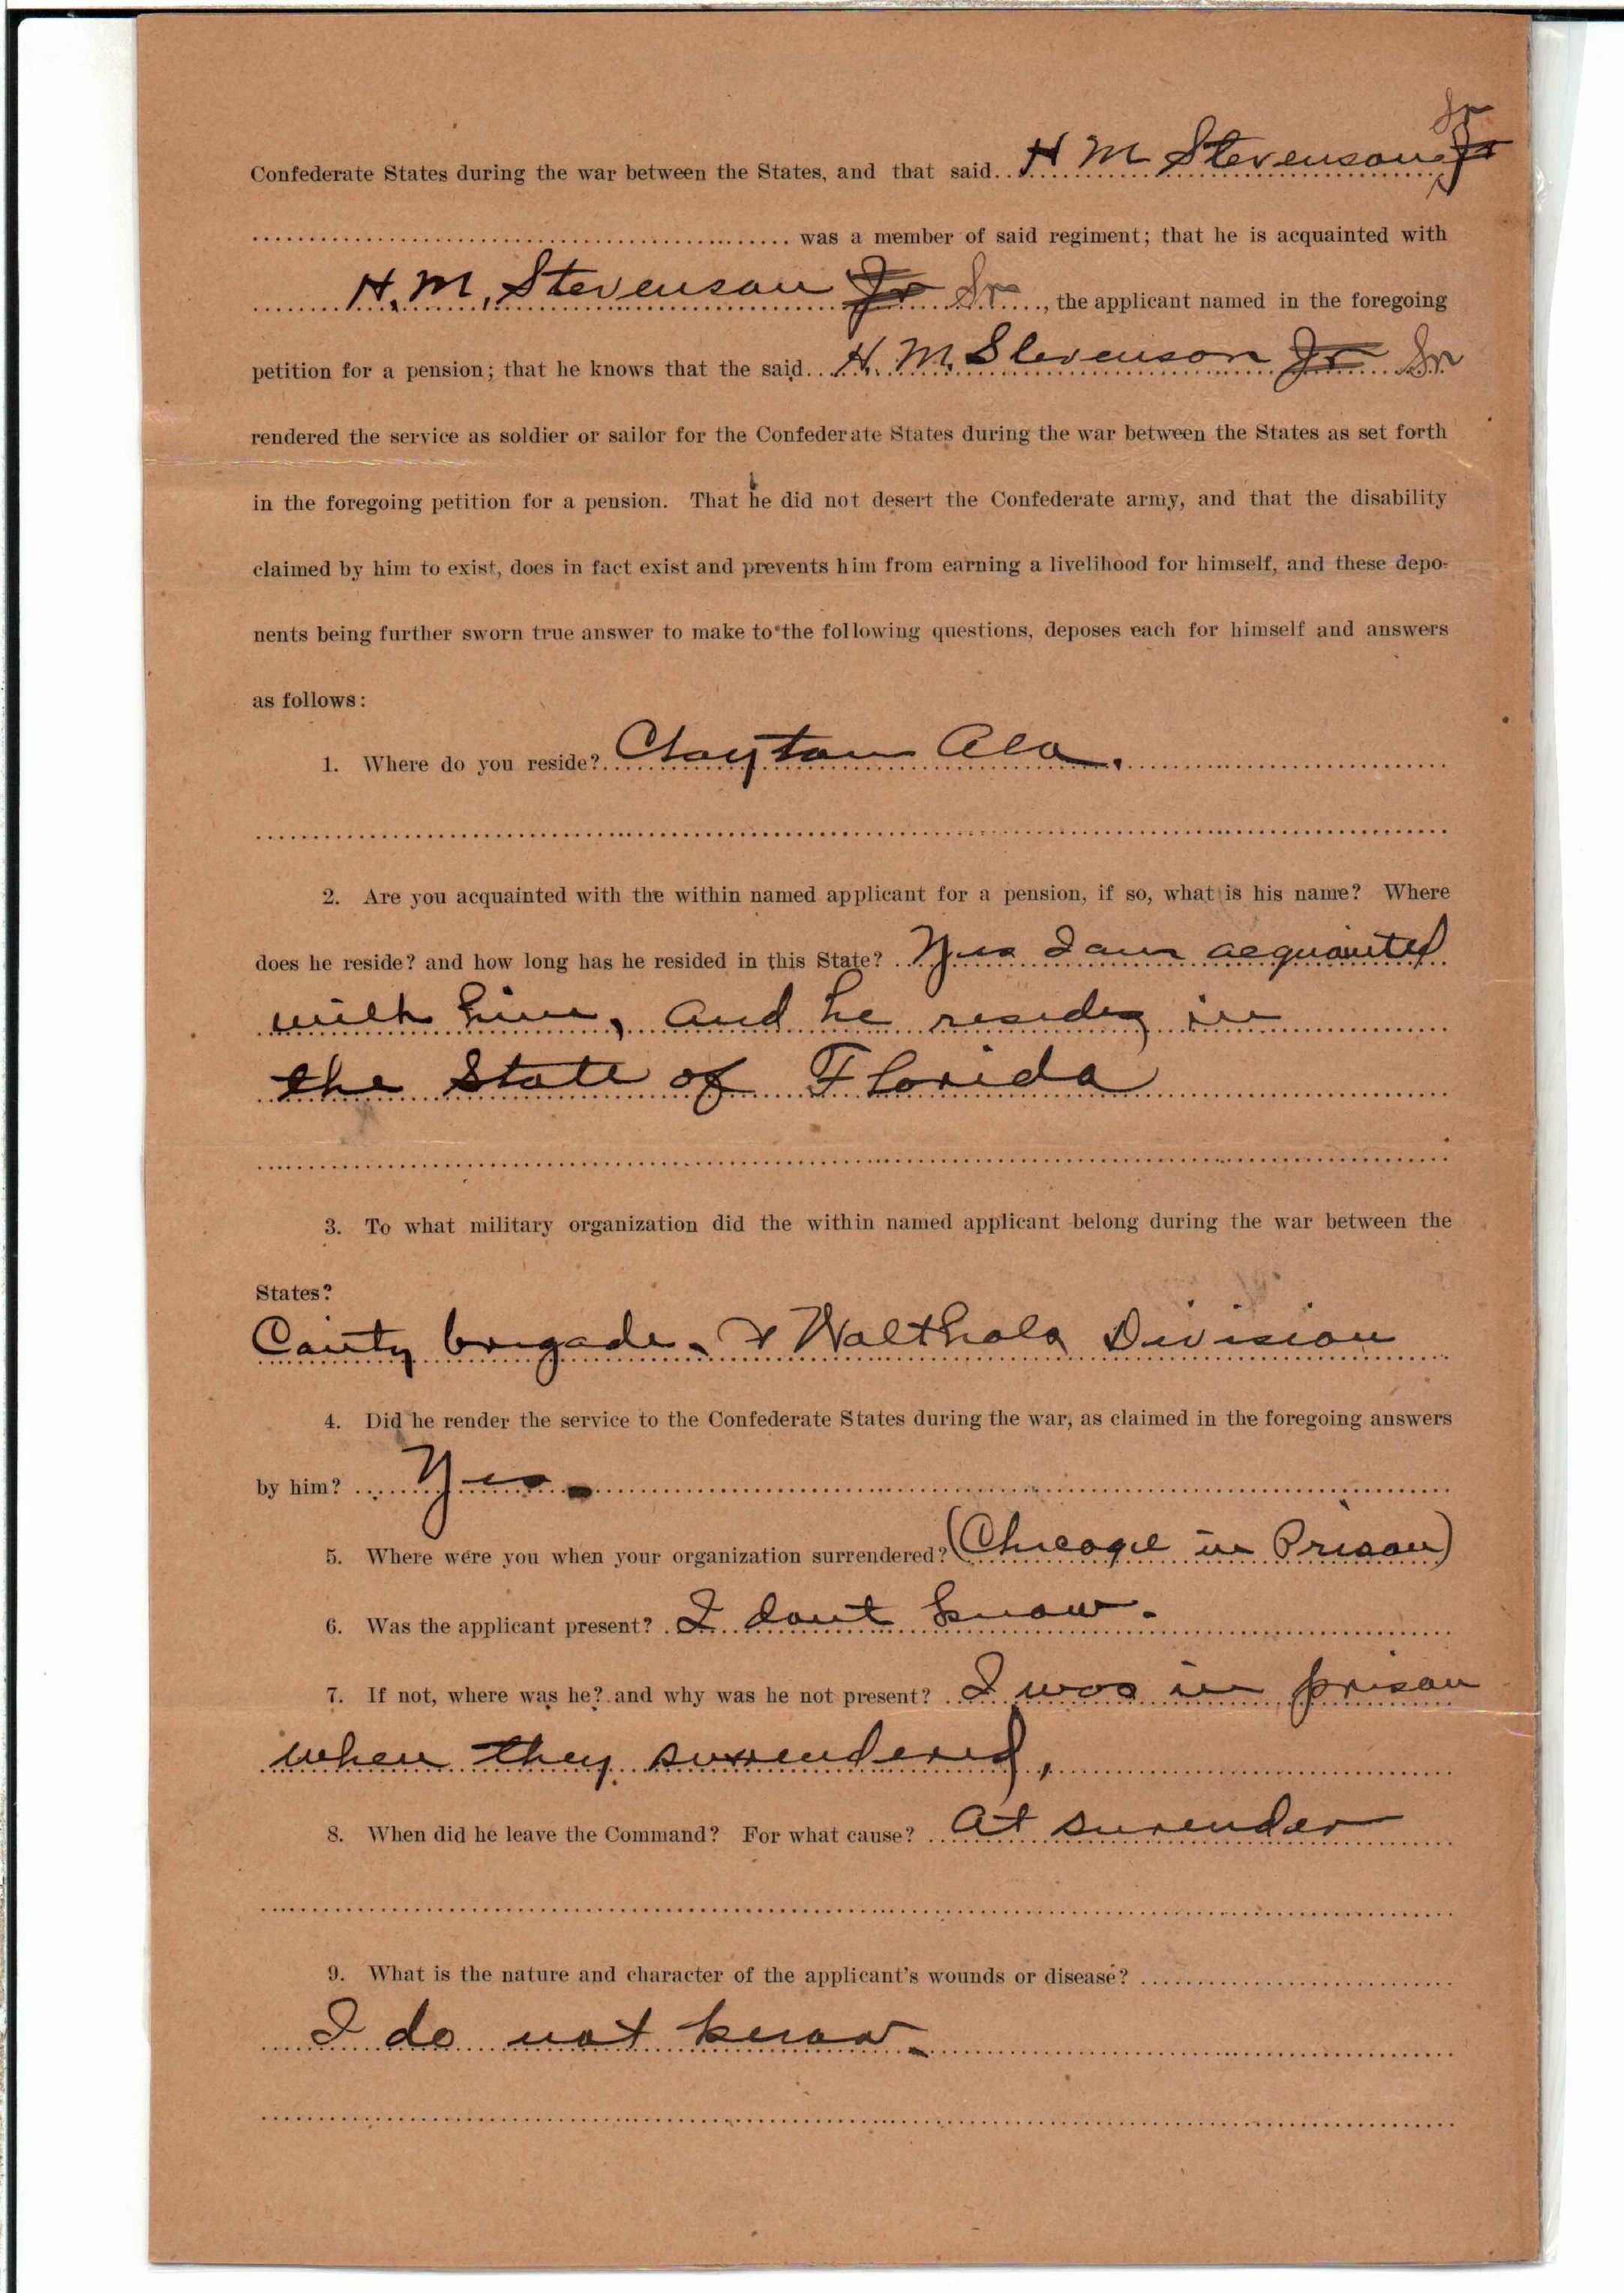 Sr
Confederate States during the war between the States, and that said H M Stevenson Jr
was a member of said regiment; that he is acquainted with
H. M, Stevenson Jr Sr, the applicant named in the foregoing
petition for a pension; that he knows that the said H. M. Stevenson Jr Sr
rendered the service as soldier or sailor for the Confederate States during the war between the States as set forth
in the foregoing petition for a pension. That he did not desert the Confederate army, and that the disability
claimed by him to exist, does in fact exist and prevents him from earning a livelihood for himself, and these depo-
nents being further sworn true answer to make to the following questions, deposes each for himself and answers
as follows:
1. Where do you reside? Clayton Ala.
2. Are you acquainted with the within named applicant for a pension, if so, what is his name? Where
does he reside? and how long has he resided in this State? Yes I am acquainted
with him, and he resides in
the State of Florida
3. To what military organization did the within named applicant belong during the war between the
States?
Canty brigade. & Walthals Division
4. Did he render the service to the Confederate States during the war, as claimed in the foregoing answers
by him? Yes.
5. Where were you when your organization surrendered? (Chicago in Prison)
6. Was the applicant present? I dont know.
7. If not, where was he? and why was he not present? I was in prison
when they surrendered,
8. When did he leave the Command? For what cause? At surender
9. What is the nature and character of the applicant's wounds or disease?
I do not know.